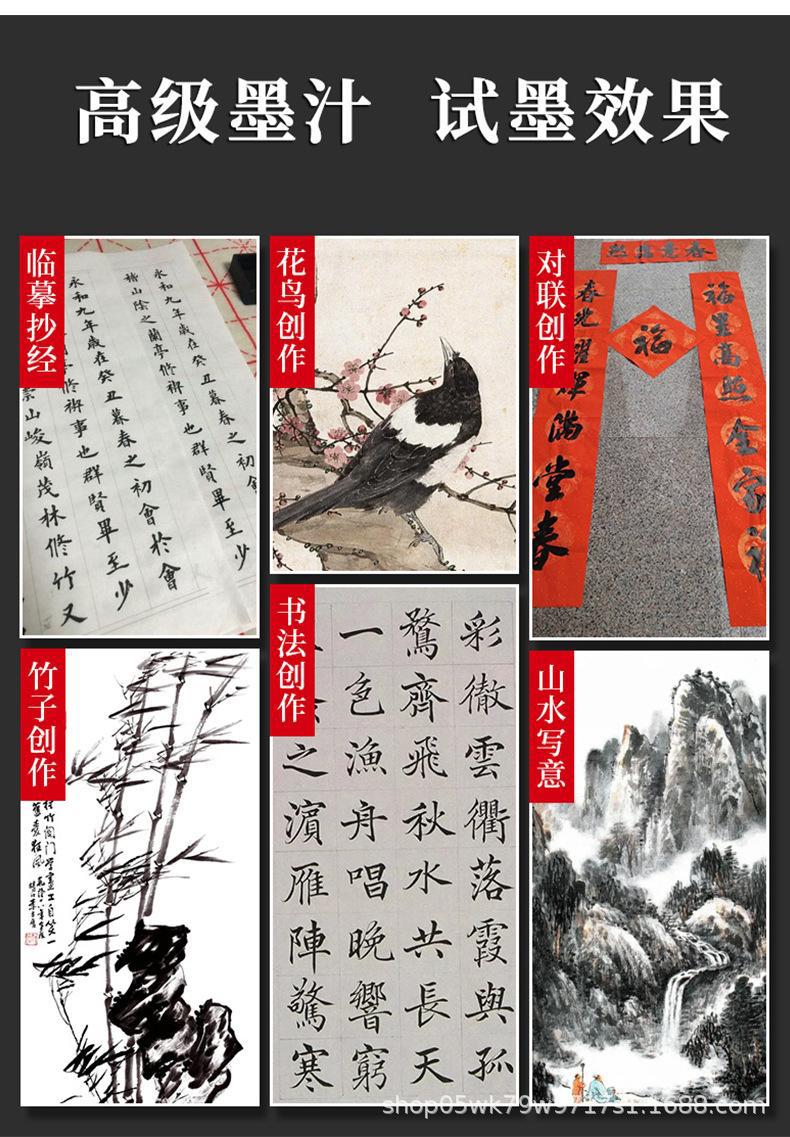 高级墨汁 试墨效果
临摹抄经
永和九年歲在癸丑暮春之初會
稽山陰之蘭亭修禊事也群賢畢至少
永和九年歲在癸丑暮春之初會於會
修禊事也群賢畢至少
崇山峻嶺茂林修竹又
花鸟创作
对联创作
春意
福星高照全家福
福
滿堂春
竹子创作
书法创作
彩徹雲衢落霞與孤
鶩齊飛秋水共長天
一色漁舟唱晚響窮
之濵雁陣驚寒
山水写意
shop05wk79w9717s1.1688.com